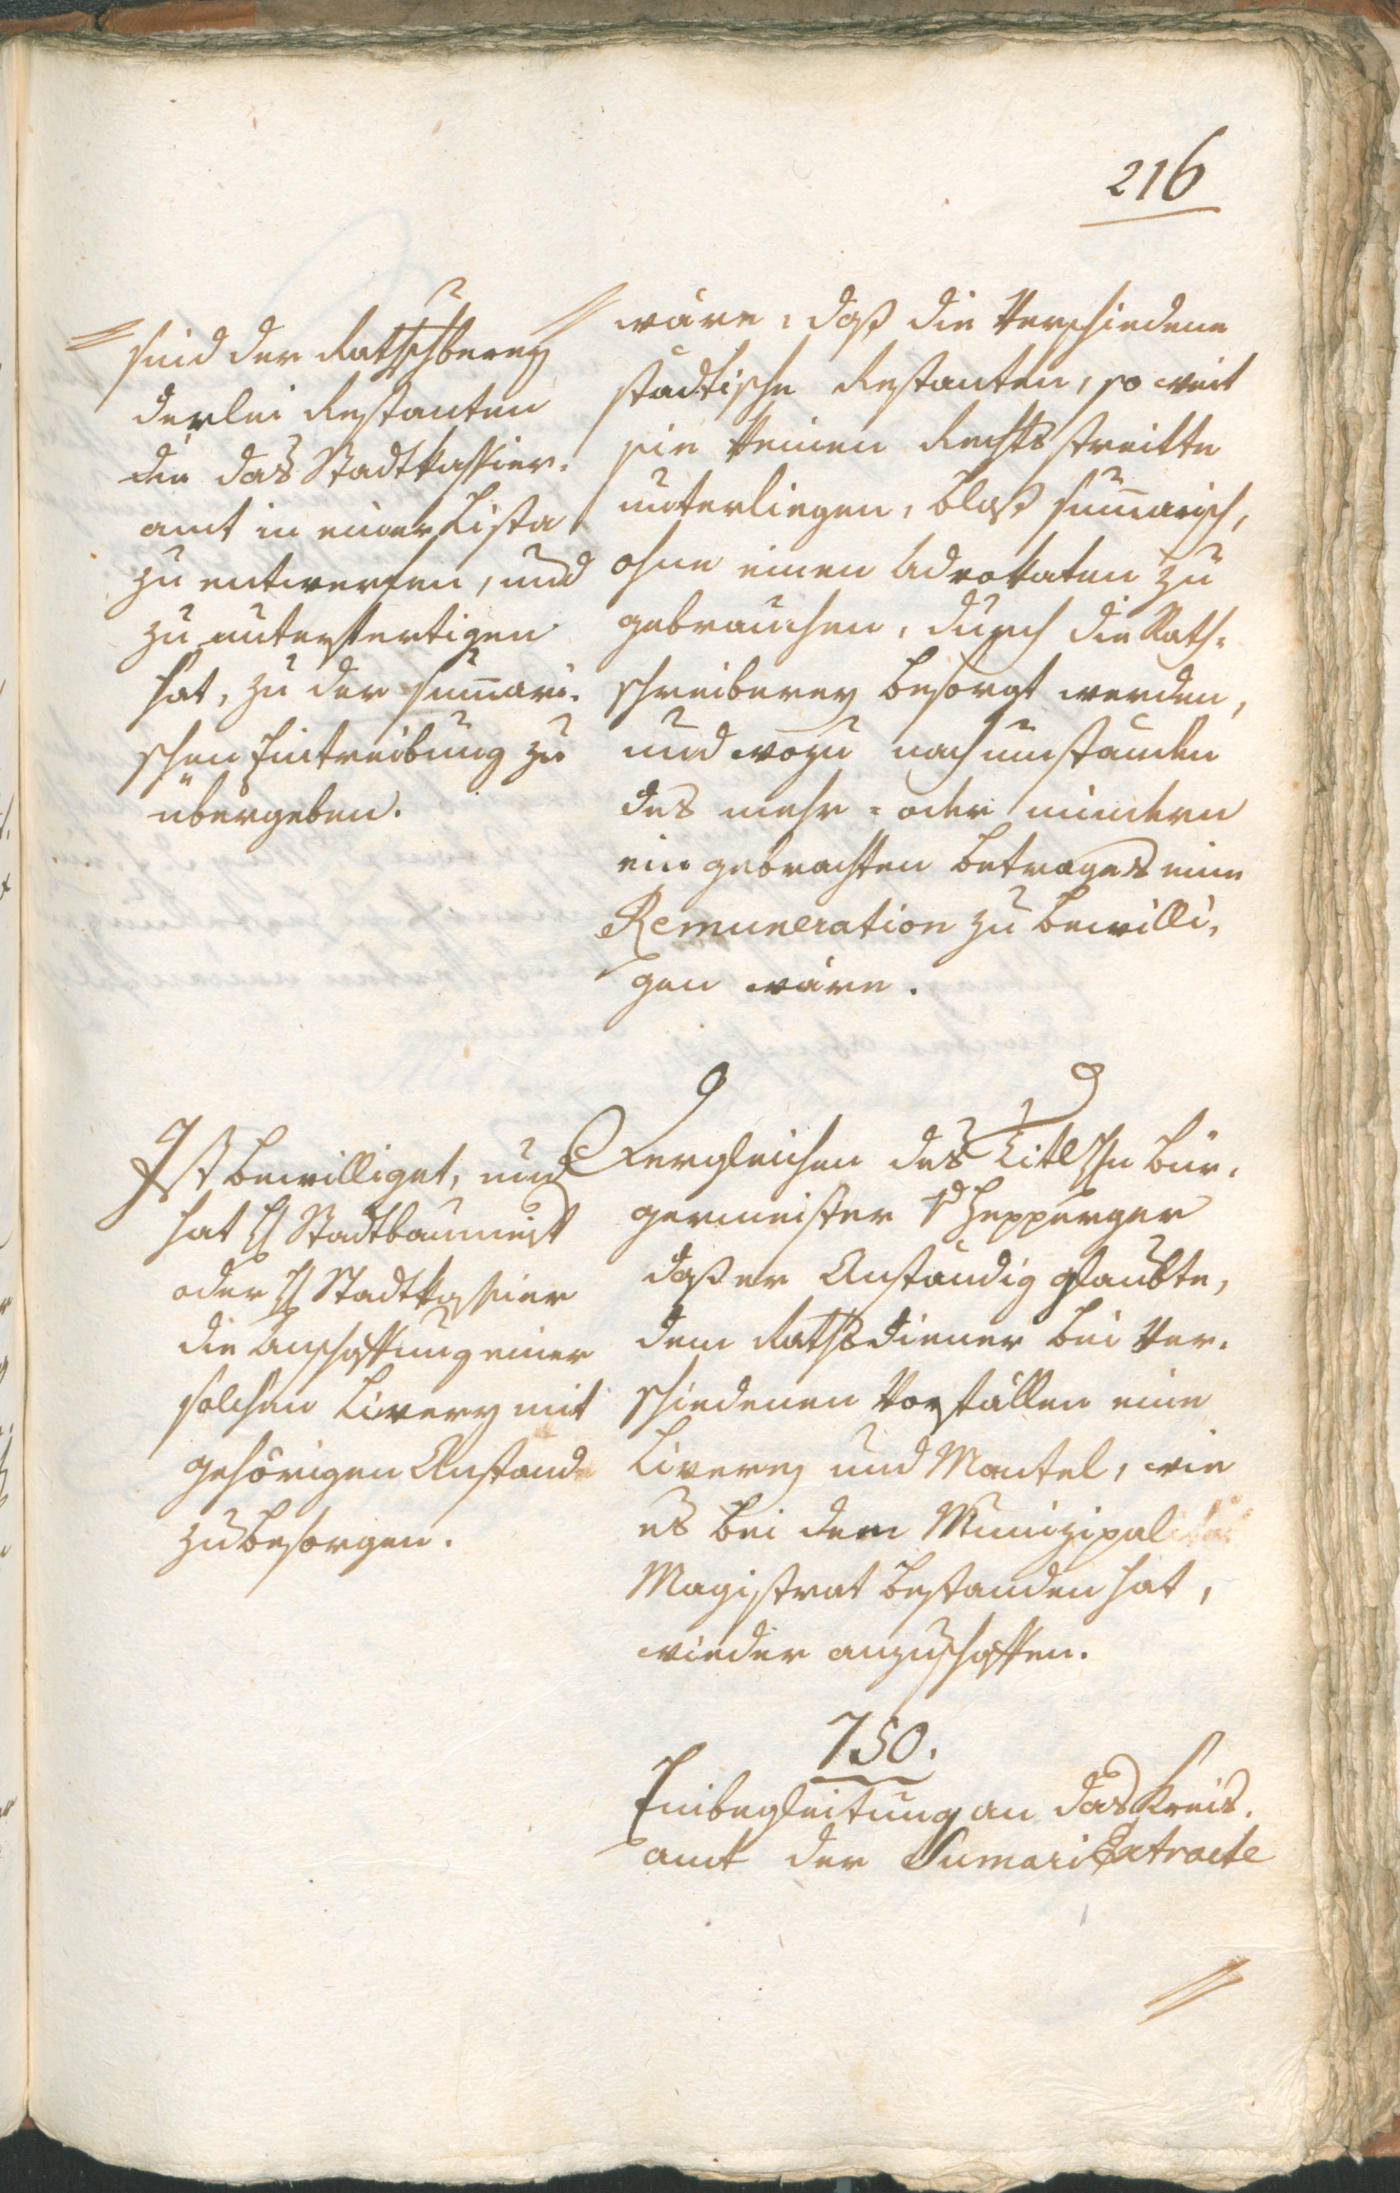 216
sind der Rathschberey
derlei Restanten
die das Stadtkassier-
amt in einer Lista
zu entwerfen, und
zu unterfertigen
hat, zu der sum̄ari-
schen Eintreibung zu
übergeben.
wäre, daß die Verschiedene
städtische Restanten, so weit
sie keinen Rechtsstreitte
unterliegen, bloß sum̄arisch,
ohne einen Advokaten zu
gebrauchen, durch die Rath-
schreiberey besorgt werden,
und wozu nach umständen
des mehr- oder mindern
ein gebrachten betrages eine
Remuneration zu bewilli-
gen wäre.
Ist bewilliget, und
hat H Stadtbaumeist
oder H Stadtkassier
die Anschaffung einer
solchen Liverey mit
gehörigen Anstande
zu besorgen.
Dergleichen des Titl Hn bür-
germeister v Hepperger
daß er Anständig glaubte,
dem Rathsdiener bei Ver-
schiedenen Vorfällen eine
Liverey und Mantel, wie
es bei dem Munizipal
Magistrat bestanden hat,
wieder anzuschaffen.
750.
Einbegleitung an das Kreis-
amt der Sumari Extracte